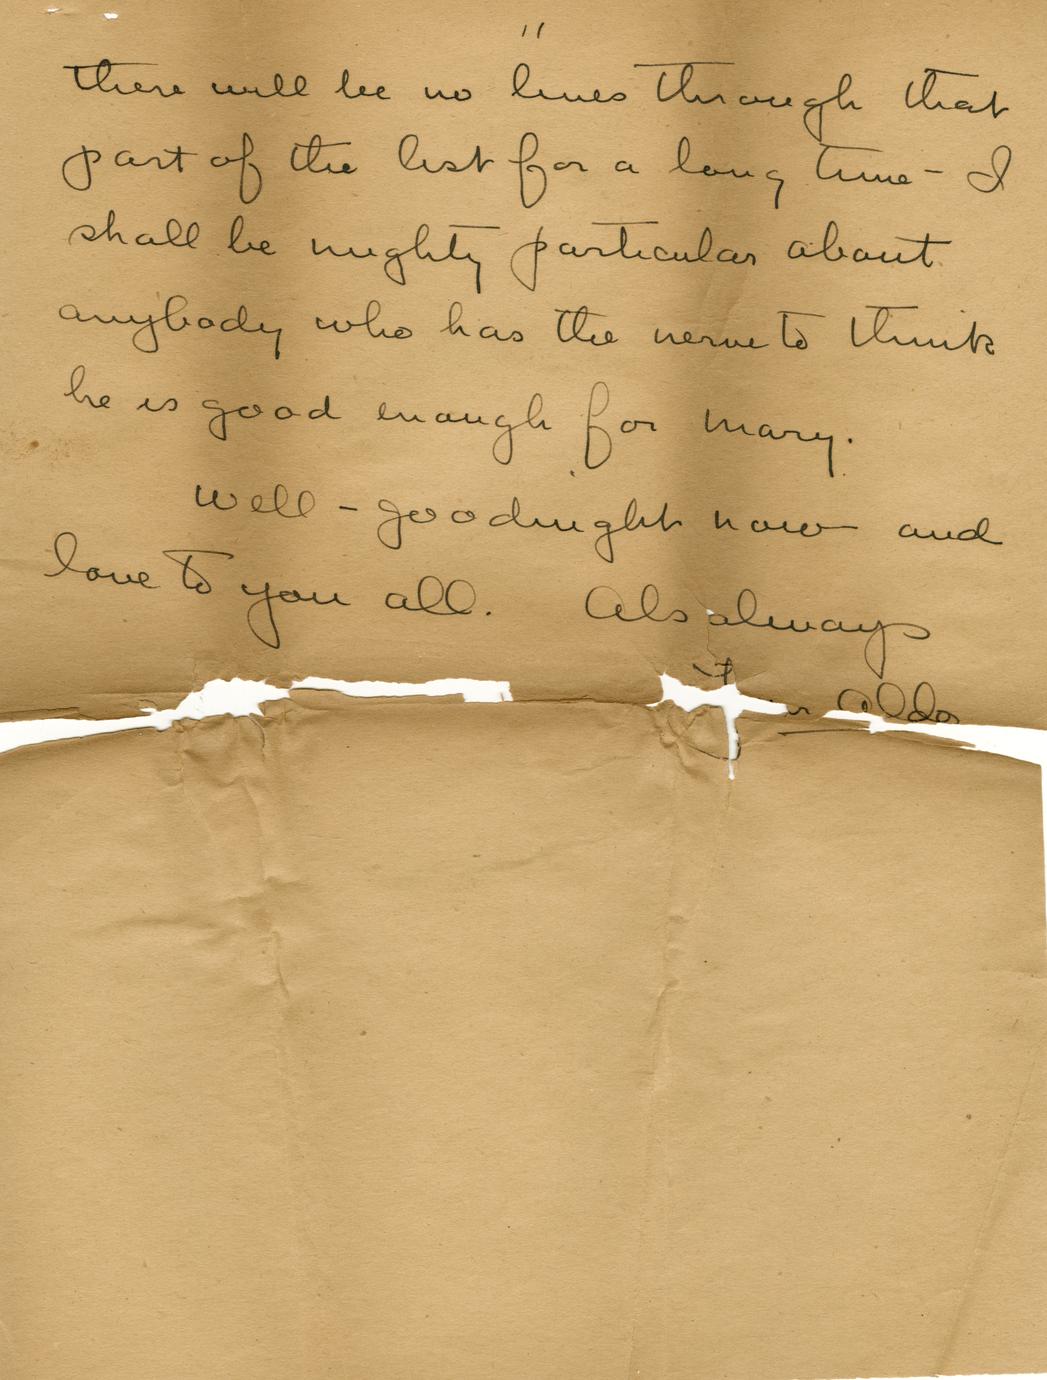 11
there will be no lines through that
part of the list for a long time - I
shall be mighty particular about
anybody who has the nerve to think
he is good enough for Mary.
Well - goodnight now and
love to you all. Als always
Aldo